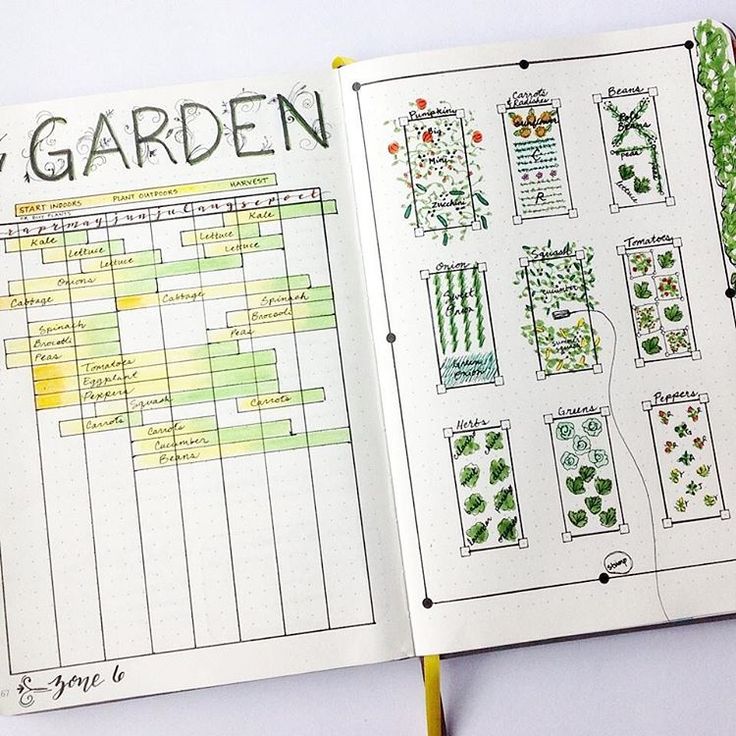 GARDEN
START INDOORS PLANT OUTDOORS HARVEST
OR BUY PLANTS
r apr may jun jul aug sep oct
Kale Kale
Lettuce Lettuce
Lettuce Lettuce
Onions
Cabbage Cabbage Spinach
Spinach Brocooli
Brocolli Peas
Peas
Tomatoes
Eggplant
Peppers
Squash Carrots
Carrots Carrots
Cucumber
Beans
67
zone 6
Pumpkin
Big
Mini
Zucchini
Carrots
& Radishes
Sunflower
C
R
Beans
Pole
Beans
Peas
Lettuce
Onion
Sweet
Onion
Green
Onion
Squash
Cucumber
Summer
Squash
Tomatoes
Herbs
Greens
Peppers
stump